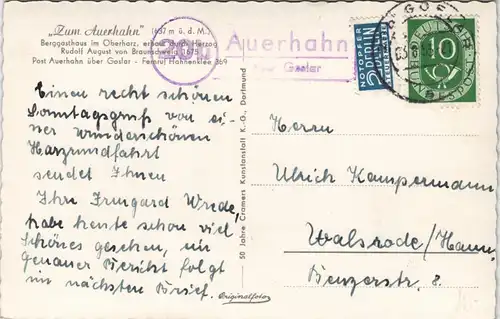 „Zum Auerhahn" (637 m ü. d. M.)
Berggasthaus im Oberharz, erbaut von Herzog
Rudolf August von Braunschweig 1675
Post Auerhahn über Goslar - Fernruf Hahnenklee 369
20b
Auerhahn
über Goslar
NOTOPFER
2 BERLIN
STEUERMARKE
GOSLAR
10
DEUTSCHE BUNDESPOST
Einen recht schönen
Sonntagsgruß von ei-
ner wunderschönen
Harzrundfahrt
sendet Ihnen
Ihre Irmgard Wrede,
habe heute schon viel
Schönes gesehen, ein
genauer Bericht folgt
im nächsten Brief.
Originalfoto
50 Jahre Cramers Kunstanstalt K.-G., Dortmund
Herrn
Ulrich Kampermann
Walsrode/Hann.
Benzerstr. 8